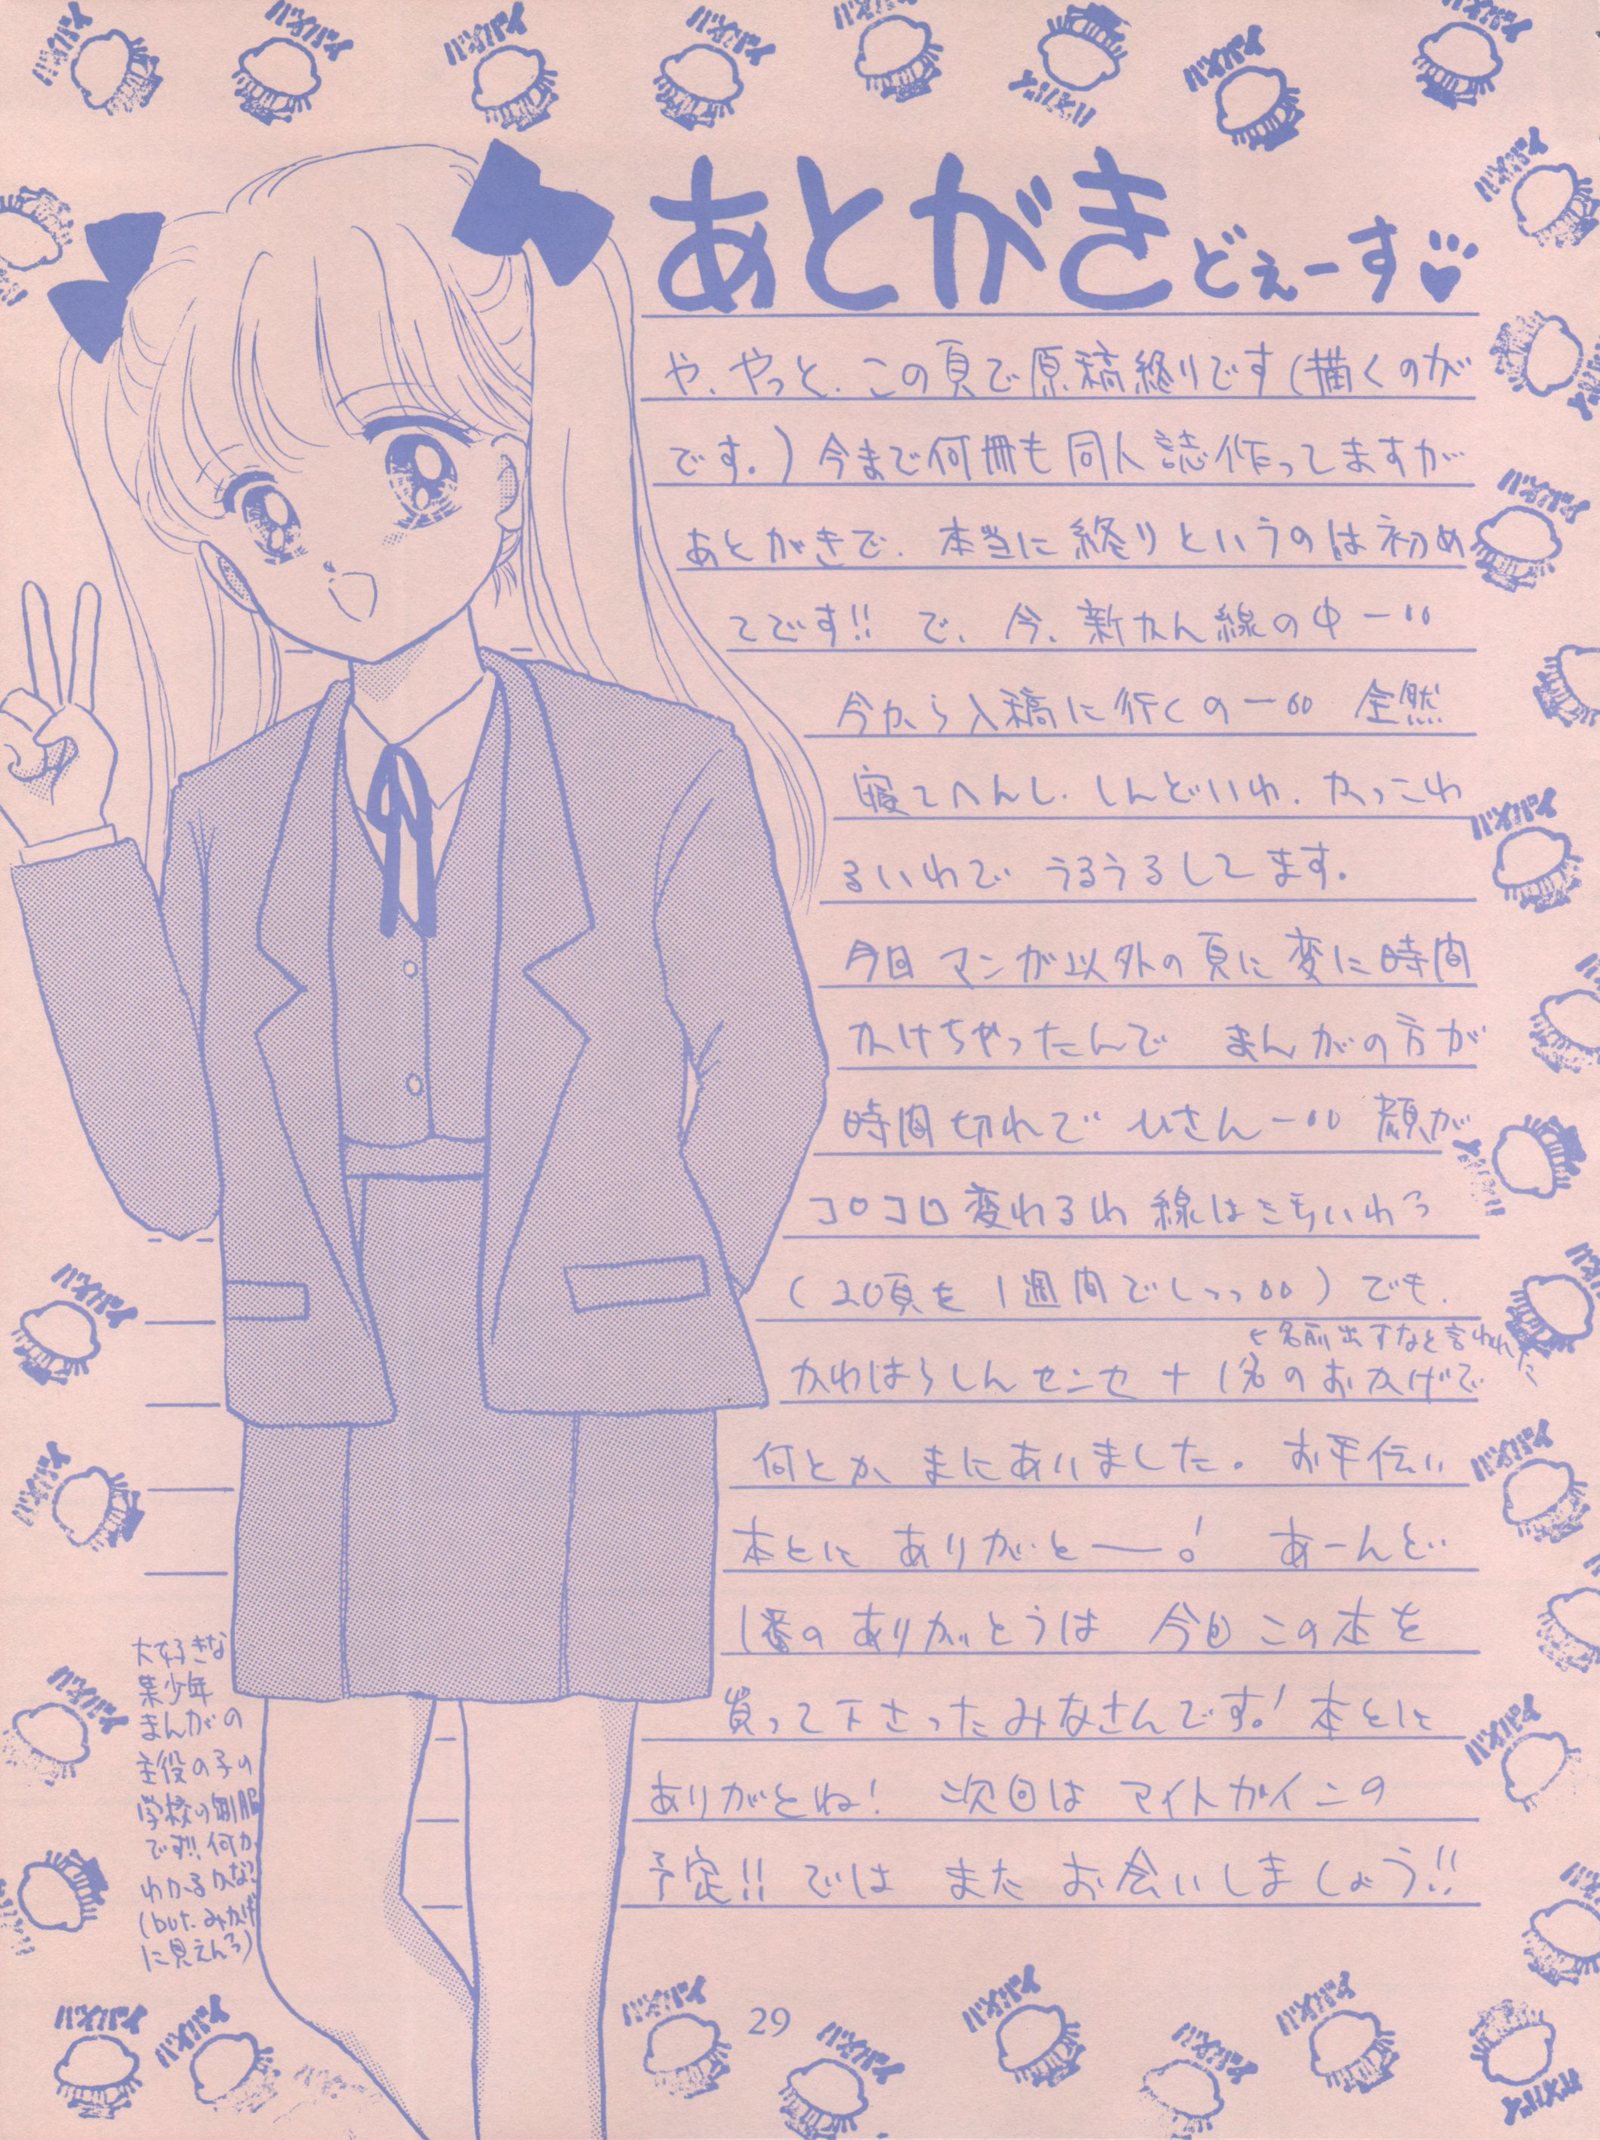 あとがき どぇーす
や、やっと、この頁で原稿終りです(描くのが
です。)今まで何冊も同人誌作ってますが
あとがきで、本当に終りというのは初め
てです!! で、今、新かん線の中ー
今から入稿に行くのー 全然
寝てへんし、しんどいわ、かっこわ
るいわで うるうるしてます。
今回マンガ以外の頁に変に時間
かけちゃったんで まんがの方が
時間切れで ひさんー 顔が
コロコロ変わるわ 線はきちいわっ
(20頁を1週間でしっっ)でも、
←名前出すなと言われた
かわはらしんセンセ+1名のおかげで
何とか、まにあいました。お手伝い
本とに ありがとー! あーんど
1番のありがとうは 今回この本を
買って下さったみなさんです!本とに
ありがとね! 次回はマイトガインの
予定!! では また お会いしましょう!!
大好きな
某少年
まんがの
主役の子の
学校の制服
です!!何か
わかるかな?
(but、みかけ
に見えんっ)
29